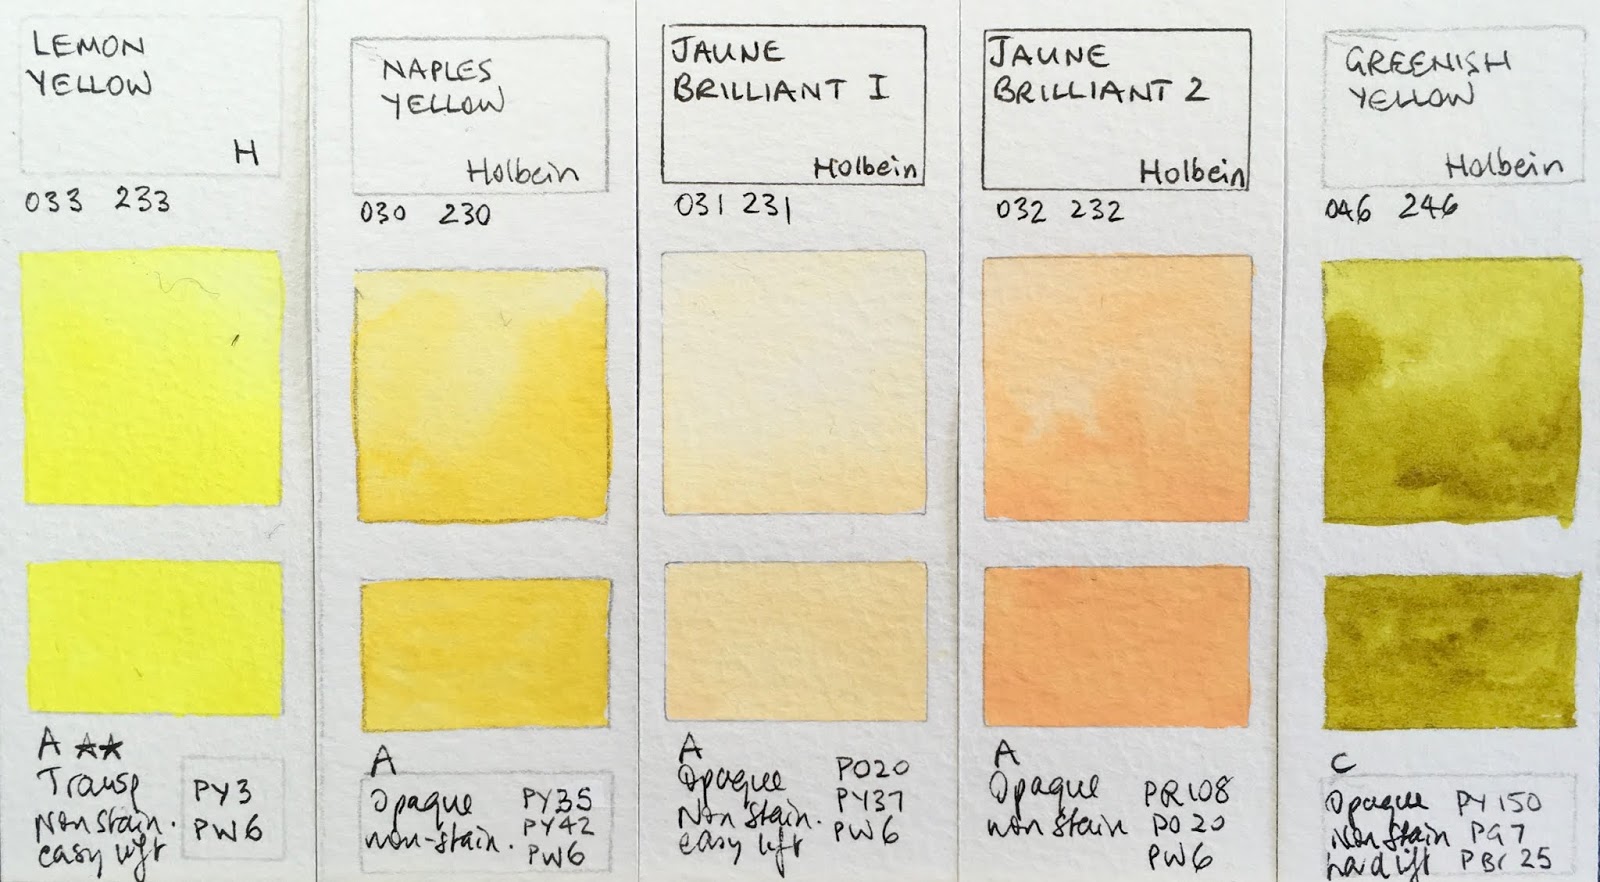 LEMON
YELLOW
H
033 233
A ★★
Transp
Non stain.
easy lift
PY3
PW6
NAPLES
YELLOW
Holbein
030 230
A
Opaque
non-stain.
PY35
PY42
PW6
JAUNE
BRILLIANT I
Holbein
031 231
A
Opaque
Non Stain.
easy lift
PO20
PY37
PW6
JAUNE
BRILLIANT 2
Holbein
032 232
A
Opaque
non stain
PR108
PO20
PW6
GREENISH
YELLOW
Holbein
046 246
C
Opaque
Non Stain
hard lift
PY150
PG7
PBr25